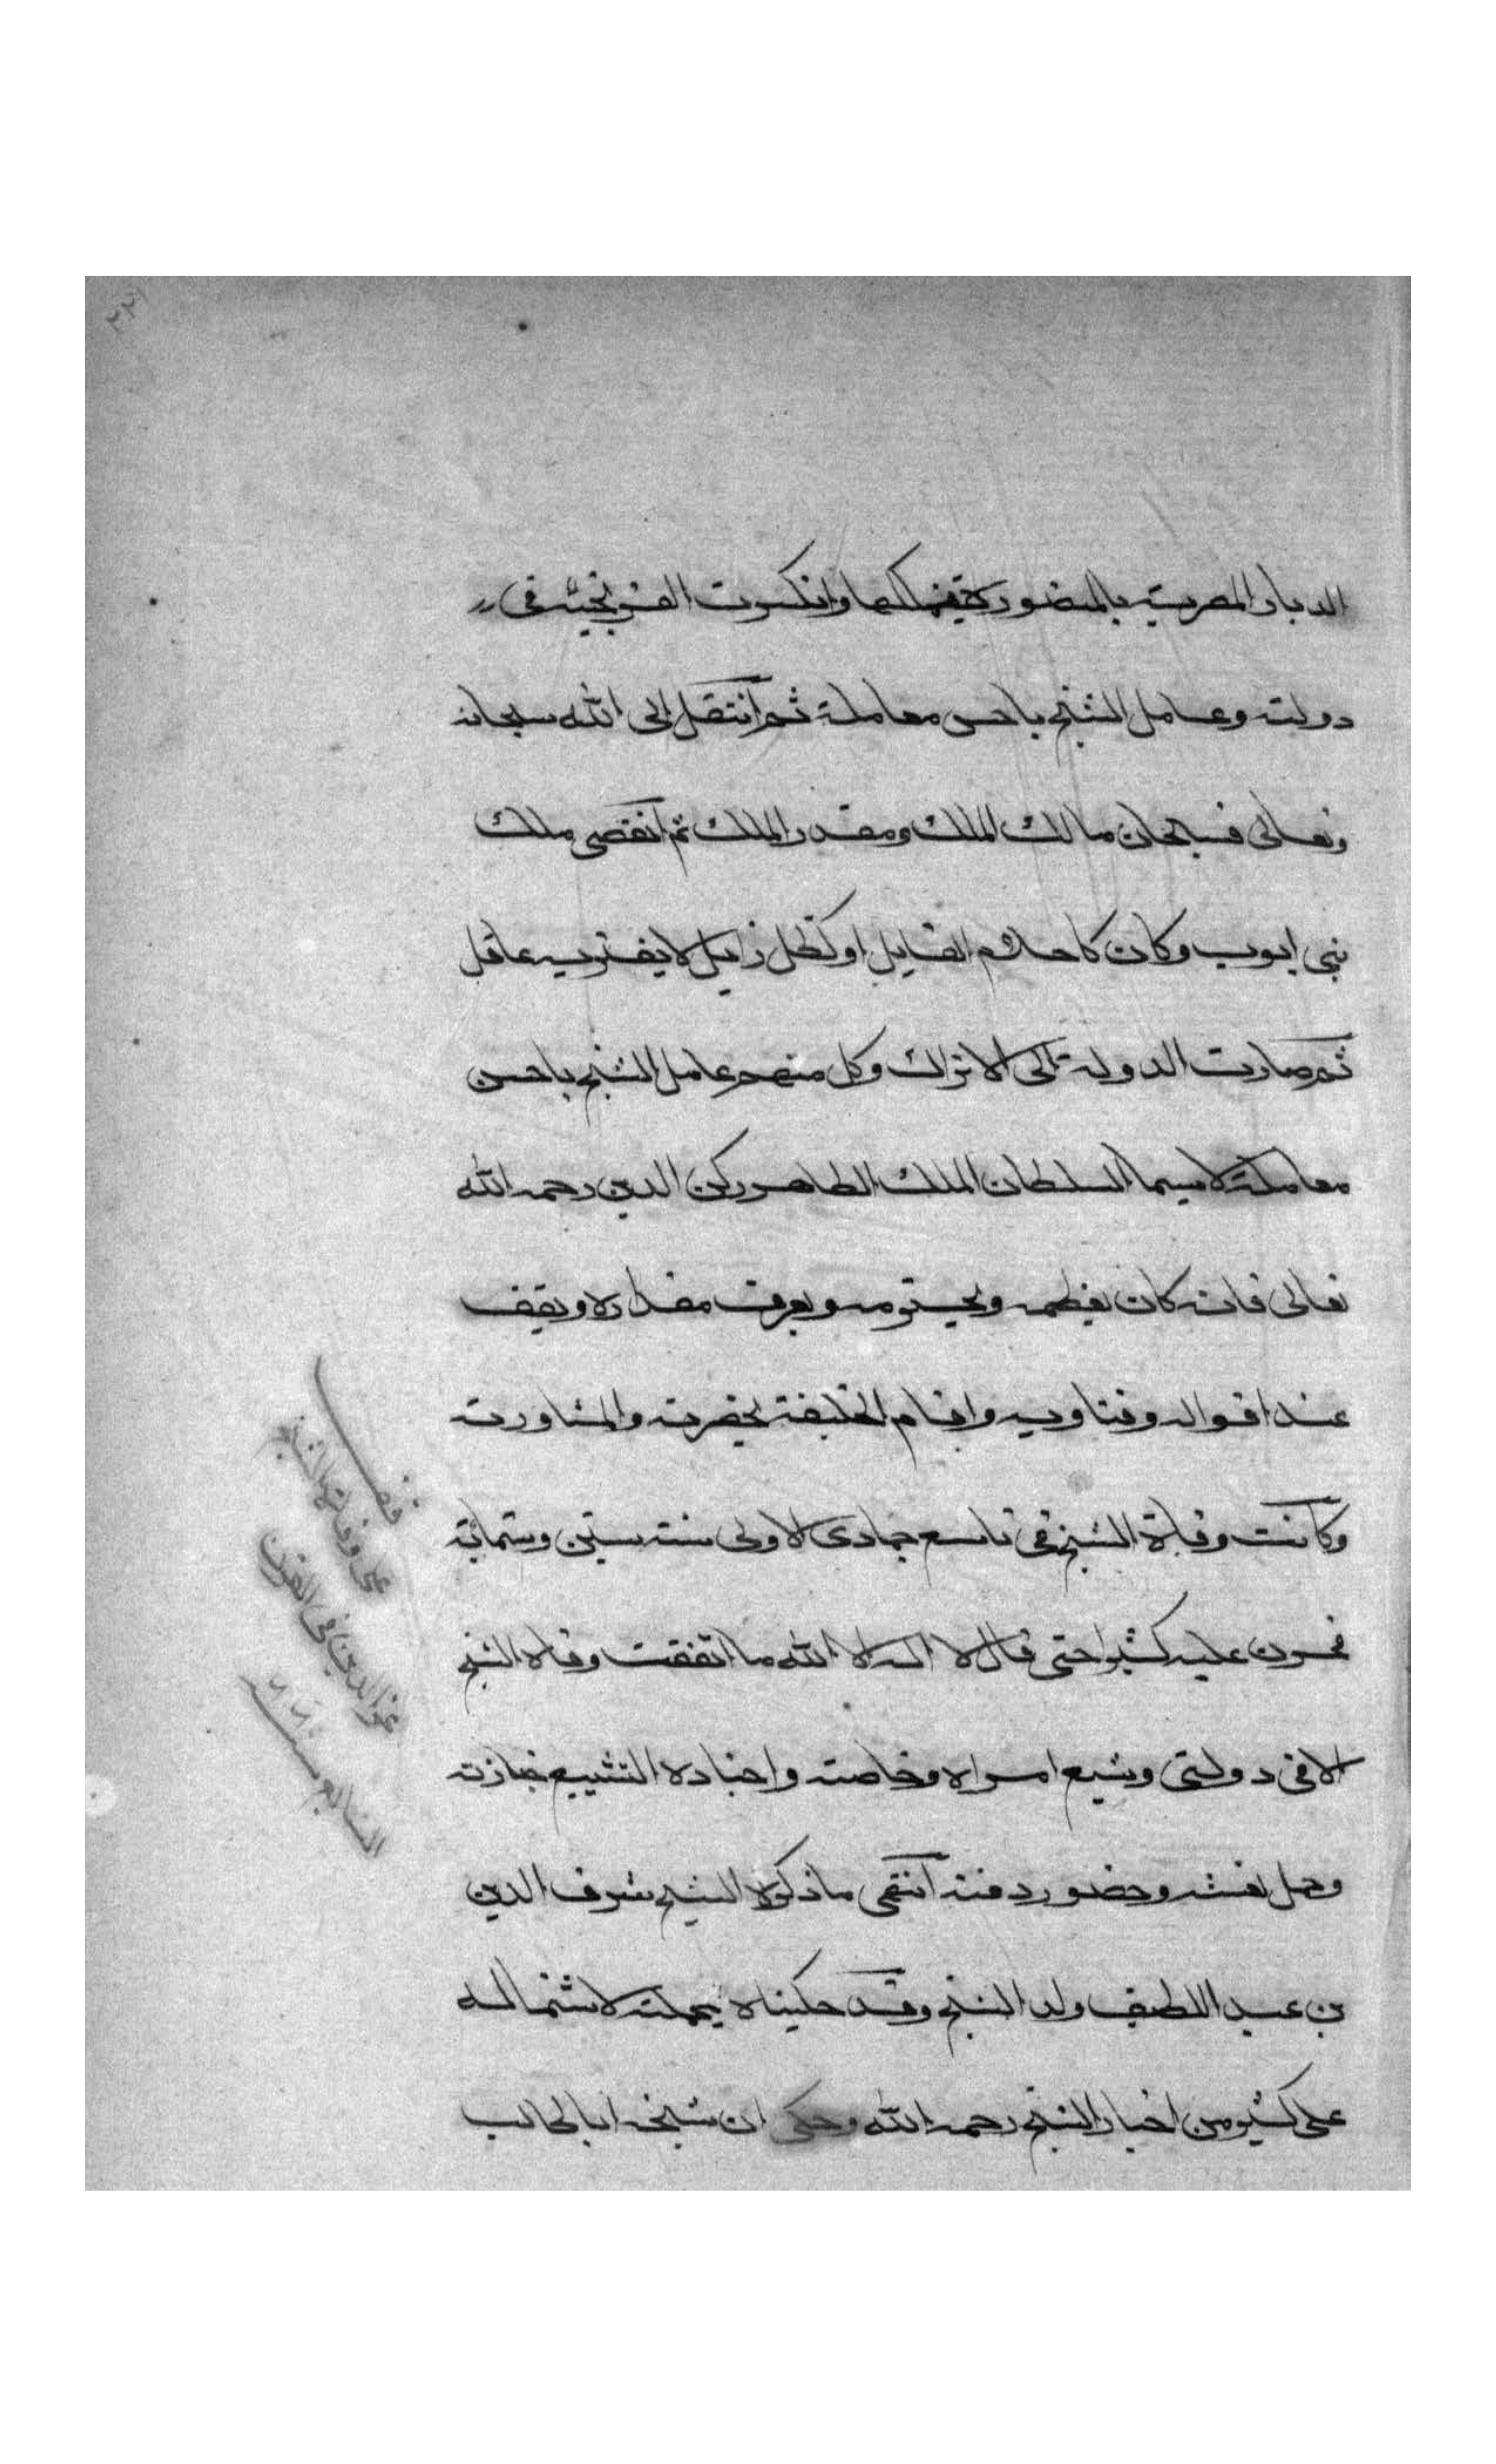 الديار المصرية بالمنصورة وانكسرت الفرنجية في
دولته وعامل الشيخ باحسن معاملة ثم انتقل الى الله سبحانه
وتعالى فسبحان مالك الملك ومقدر الملك ثم انقضى ملك
بني ايوب وكان كاحلام القايل او كظل زايل لا يغتر به عاقل
ثم صارت الدولة الى الاتراك وكل منهم عامل الشيخ باحسن
معاملة لا سيما السلطان الملك الظاهر ركن الدين رحمه الله
تعالى فانه كان يعظمه ويحترمه ويعرف مقداره ويقف
عند اقواله وفتاويه واقام الخليفة بحضرته والمشاورته
وكانت وفاة الشيخ في تاسع جمادى الاولى سنة ستين وستمائة
فحزن عليه كثيرا حتى قال لا اله الا الله ما اتفقت وفاة الشيخ
الا في دولتي وشيع امراه وخاصته واجناده التشييع جنازته
وحمل نعشه وحضور دفنه انتهى ما ذكره الشيخ شرف الدين
بن عبد اللطيف ولد الشيخ وقد حكيناه بجملته لاشتماله
على كثير من اخبار الشيخ رحمه الله وحكى ان شخصا
قف
على وفاة الشيخ
عز الدين في القرن
السابع سنة ٦٦٠